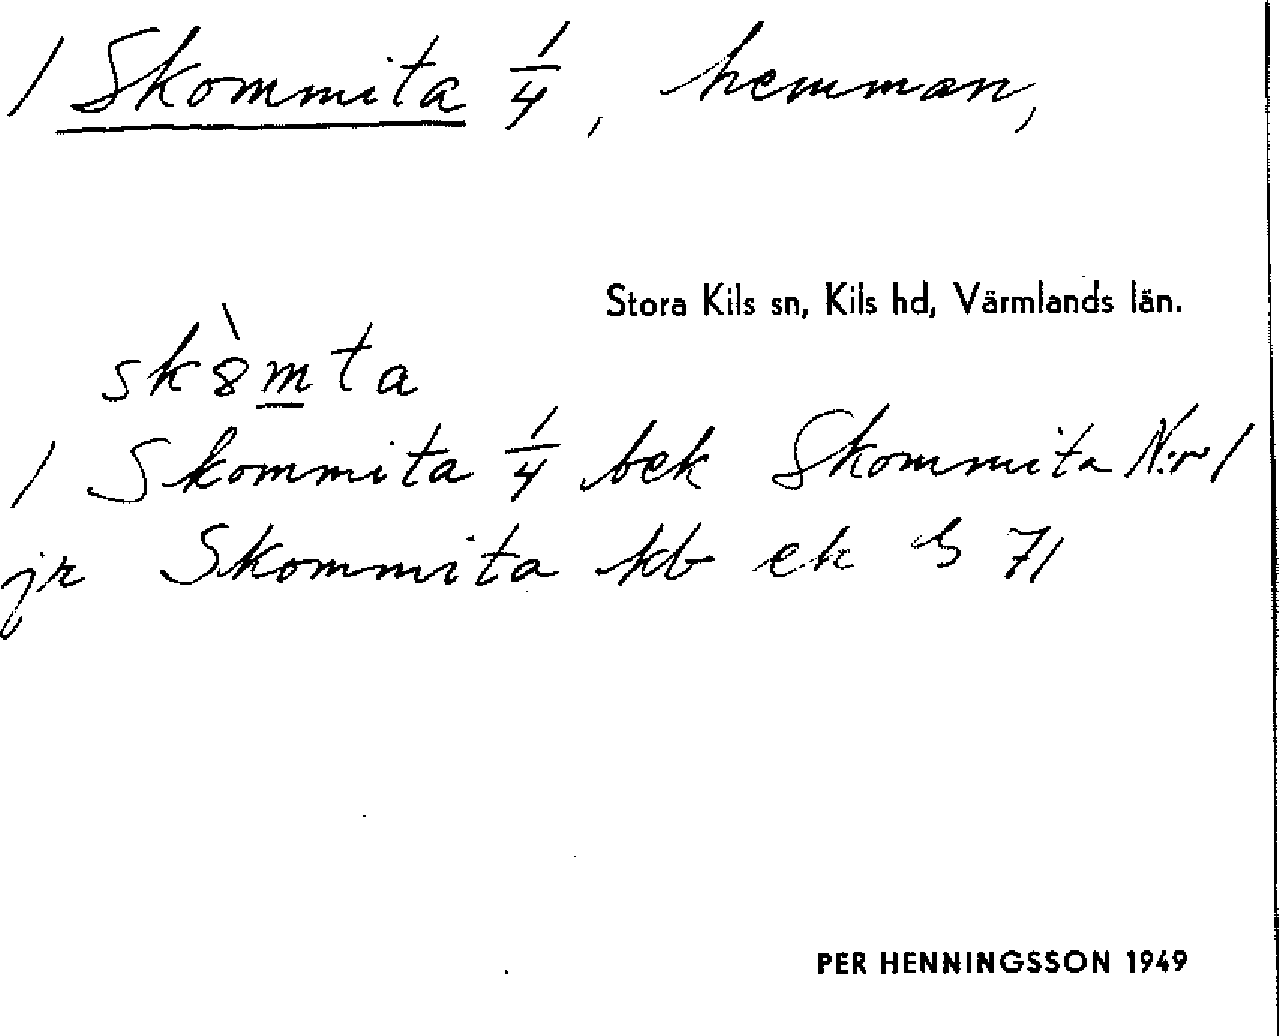 1 Skommita 1/4, hemman,
Stora Kils sn, Kils hd, Värmlands län.
sk8̀m̲ta
1 Skommita 1/4 bek Skommita N:r 1
jr Skommita kb ek S 71
PER HENNINGSSON 1949